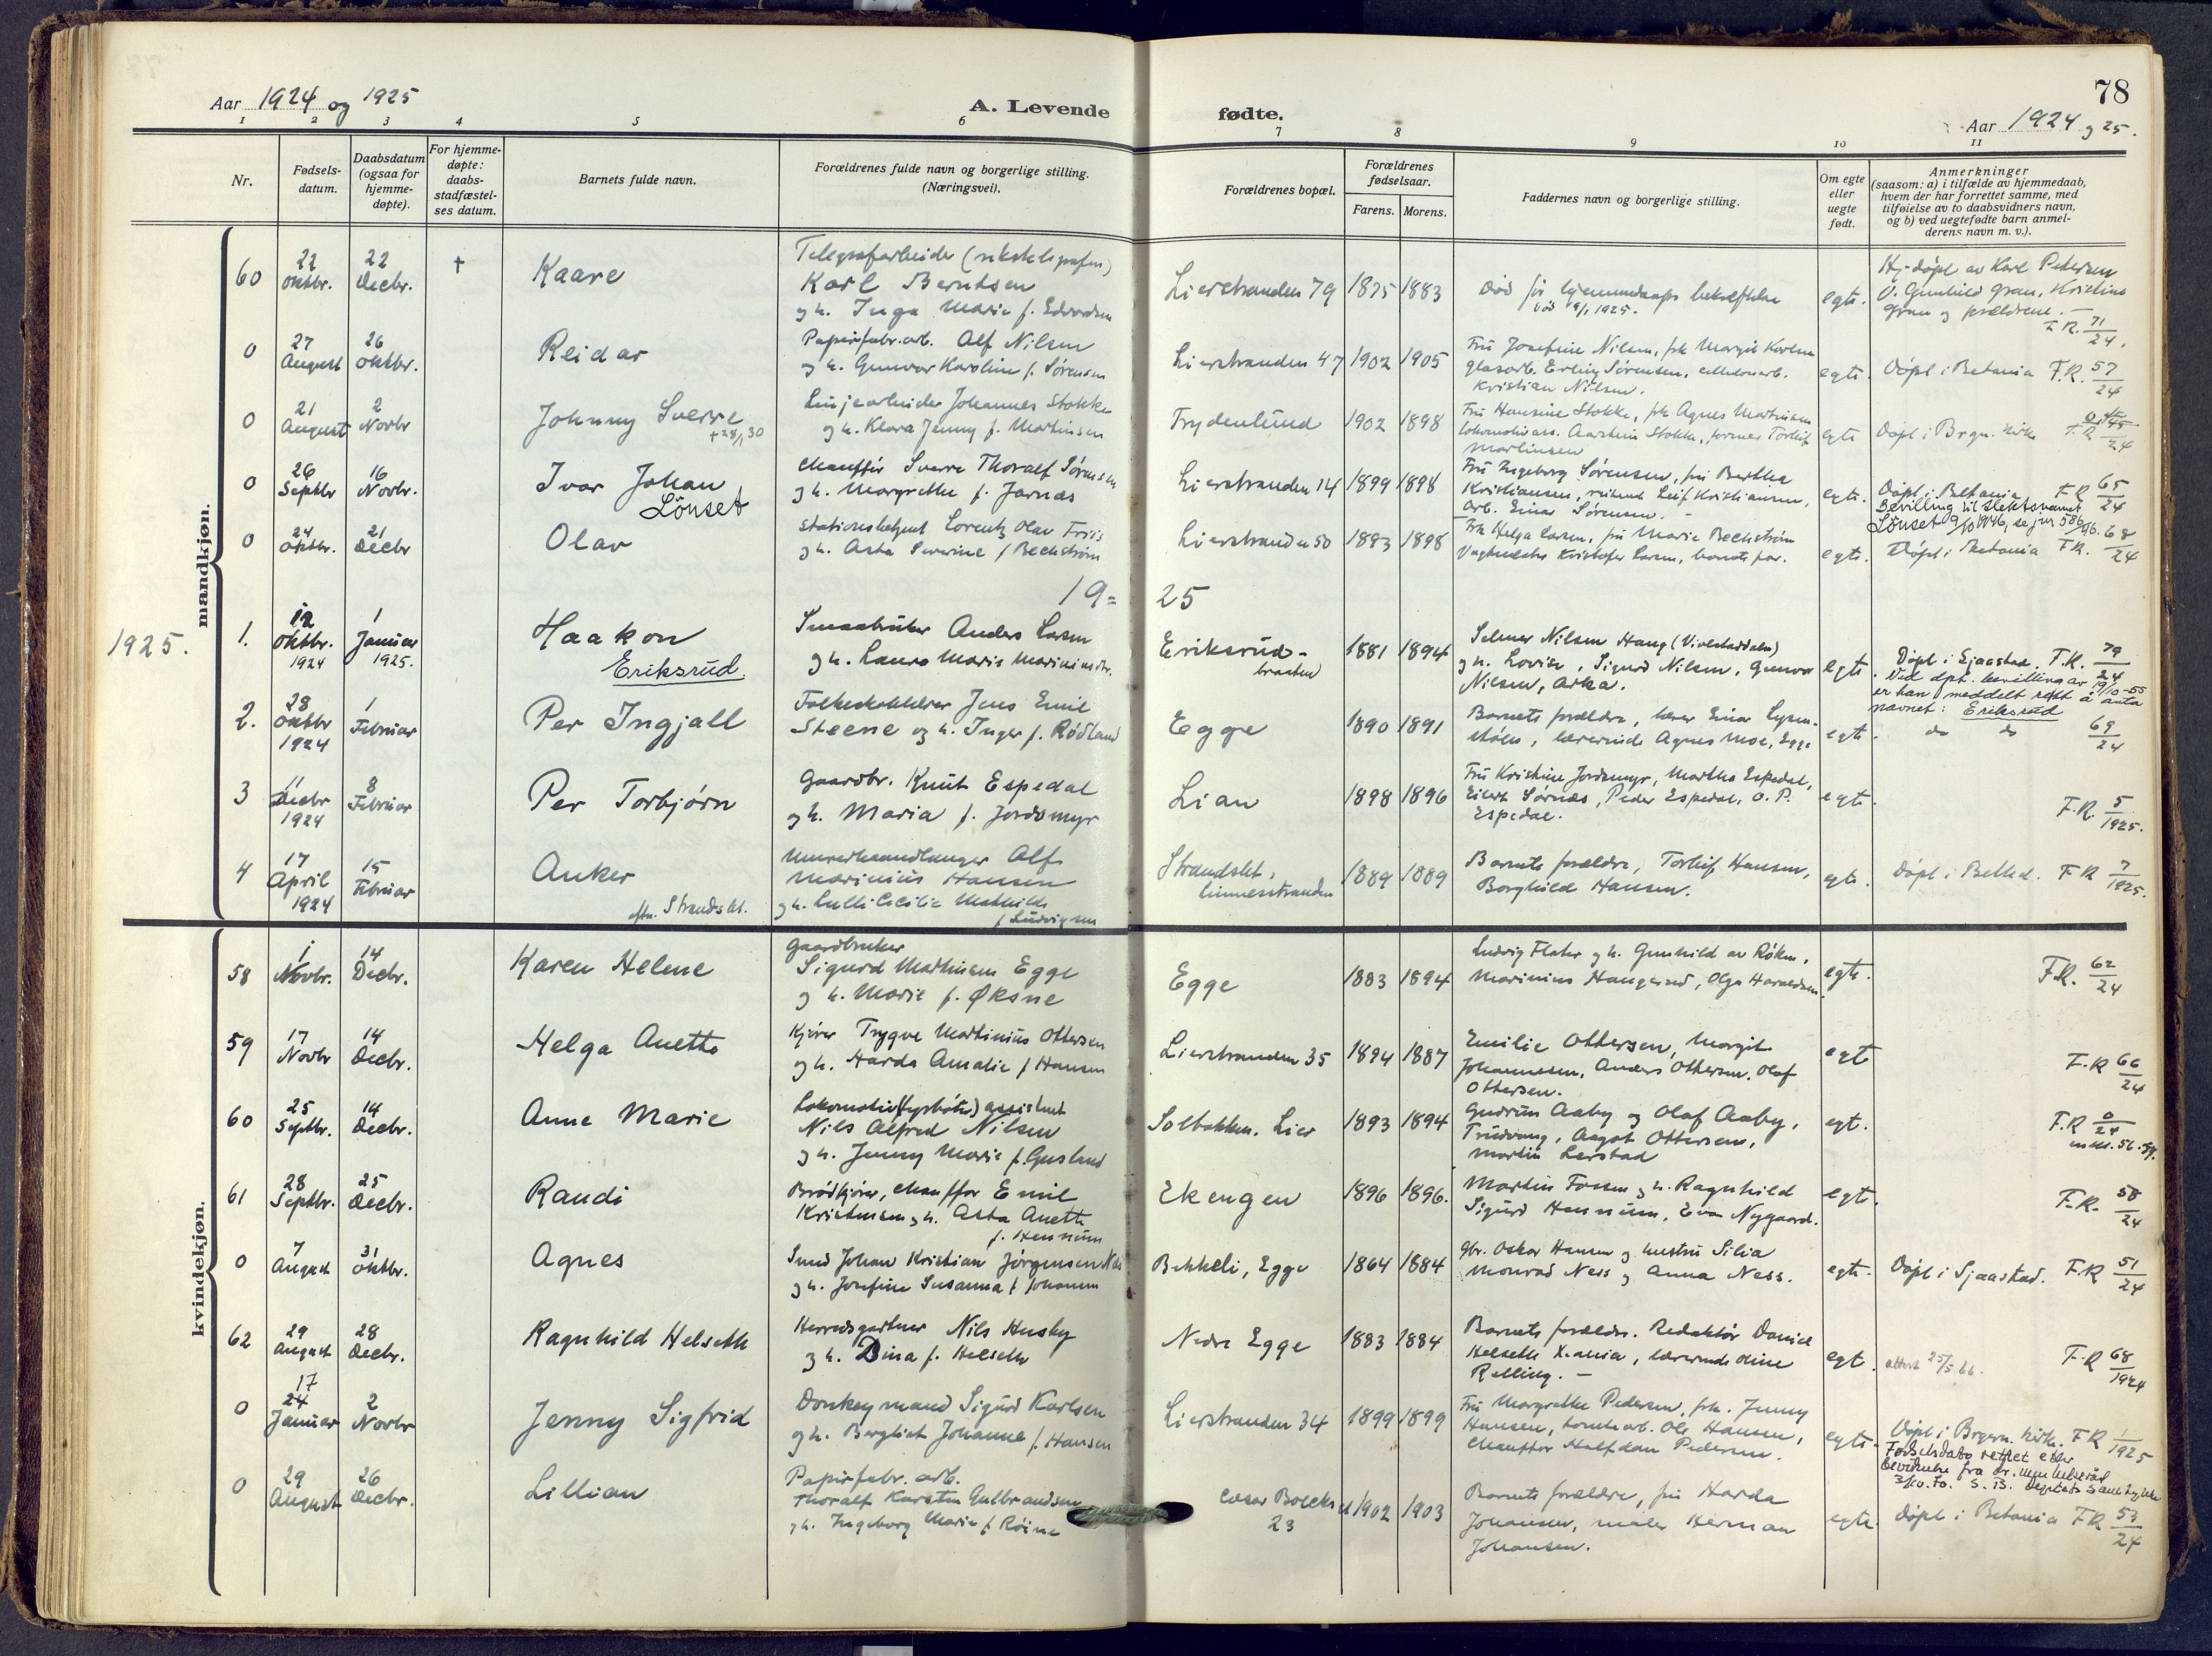 78
Aar 1924 og 1925
A. Levende fødte.
Aar 1924 og 25.
1 2 3 4 5 6 7 8 9 10 11
Nr.
Fødsels-
datum.
Daabsdatum
(ogsaa for
hjemme-
døpte).
For hjemme-
døpte:
daabs-
stadfæstel-
ses datum.
Barnets fulde navn.
Forældrenes fulde navn og borgerlige stilling.
(Næringsvei).
Forældrenes bopæl.
Forældrenes
fødselsaar.
Farens. Morens.
Faddernes navn og borgerlige stilling.
Om egte
eller
uegte
født.
Anmerkninger
(saasom: a) i tilfælde av hjemmedaab,
hvem der har forrettet samme, med
tilføielse av to daabsvidners navn,
og b) ved uegtefødte barn anmel-
derens navn m. v.).
mandkjøn.
60
22
oktbr.
22
Decbr.
†
Kaare
Telegrafarbeider (rikstelegrafen)
Karl Berntsen
og h. Inga Marie f. Edvardsen
Lierstranden 79
1875 1883
Død før hjemmedaaps bekræftelse
død 19/1 1925.
egte.
Hj-døpt av Karl Petersen
V. Gunhild Gran, Kristine
Gran og forældrene.
F.R. 71/24.
0
27
August
26
oktbr.
Reidar
Papirfabr.arb. Alf Nilsen
og h. Gunvor Karoline f. Sørensen
Lierstranden 47
1902 1905
Fru Josefine Nilsen, frk Margit Karlsen
glasarb. Erling Sørensen, cellulosearb.
Kristian Nilsen.
egte.
Døpt i Betania F.R. 57/24
0
21
August
2
Novbr
Johnny Sverre
Linjearbeider Johannes Stokke
og h. Klara Jenny f. Martinsen
Frydenlund
1902 1898
Fru Hansine Stokke, frk Agnes Martinsen
Stokke, former Torleif
Martinsen
egte
Døpt i Brgn. kirke F.R.
0
26
Septbr
16
Novbr.
Ivar Johan
Lönset
Chauffør Sverre Thoralf Sørensen
og h. Margrethe f. Jarnæs
Lierstranden 14
1899 1898
Fru Ingeborg Sørensen, fru Berthe
Kristiansen, Leif Kristiansen,
Arb. Einar Sørensen.
egte.
Døpt i Betania F.R. 65/24
Bevilling til slektsnavnet
Lönset 9/10 1946, se jnr 586/46.
0
24
oktbr.
21
Decbr
Olav
Stationsbetjent Lorentz Olav Friis
og h. Asta Severine f Bechstrøm
Lierstranden 50
1893 1898
Frk Helga Larsen, fru Marie Bechstrøm
Kristofer Larsen, barnets far.
egte.
Døpt i Betania F.R. 68/24
19= 25
1925.
1.
12
oktbr.
1924
1
Januar
1925.
Haakon
Eriksrud.
Smaabruker Anders Larsen
og h. Laura Marie Marinius dtr.
Eriksrud-
braaten
1881 1894
Selmer Nilsen Haug
og h. Lovise, Sigurd Nilsen, Gunvor
Nilsen, Aska.
egte
Døpt i Sjaastad. F.R. 79/24
Ved dpt. bevilling av 19/10-55
er han meddelt rett å anta
navnet: Eriksrud
2.
28
oktbr
1924
1
Februar
Per Ingjall
Folkeskolelærer Jens Emil
Steene og h. Inger f. Rödland
Egge
1890 1891
Barnets forældre, lærer Einar
lærerinde Agnes Moe, Egge
egte.
do do 69/24
3
11
Decbr
1924
8
Februar
Per Torbjørn
Gaardbr. Knut Espedal
og h. Maria f. Jordsmyr
Lian
1898 1896
Fru Kristine Jordsmyr, Martha Espedal,
Eilert Sørnæs, Peder Espedal, O. P.
Espedal.
egte.
F.R. 5/1925.
4
17
April
1924
15
Februar
Anker
eftn. Strandslet.
Murerhaandlanger Alf
Marinius Hansen
og h. Lulli Cecilie Mathilde
f Ludvigsen
Strandslet,
Linnesstranden
1889 1889
Barnets forældre, Torleif Hansen,
Borghild Hansen.
egte.
Døpt i Bethel. F.R 7/1925.
kvindekjøn.
58
1
Novbr.
14
Decbr.
Karen Helene
Gaardbruker
Sigurd Mathisen Egge
og h. Marie f. Øksne
Egge
1883 1894
Ludvig Flater og h. Gunhild av Røken,
Marinius Haugerud, Olga Haraldsen.
egte.
F.R. 62/24
59
17
Novbr
14
Decbr.
Helga Anette
Kjører Trygve Martinius Ottersen
og h. Harda Amalie f Hansen
Lierstranden 35
1894 1887
Emilie Ottersen, Margit
Johannesen, Anders Ottersen. Olaf
Ottersen.
egte
F.R 66/24
60
25
Septbr.
14
Decbr.
Anne Marie
Lokomotiv(fyrbøter) assistent
Nils Alfred Nilsen
og h. Jenny Marie f. Gusland
Solbakken. Lier
1893 1894
Gudrun Aaby og Olaf Aaby,
Trudvang, Aagot Ottersen,
Martin Lerstad
egt.
F.R 0/24
61
28
Septbr.
25
Decbr.
Randi
Brødkjører, chauffør Emil
Kristensen og h. Asta Anette
f. Hennum
Ekengen
1896 1896.
Martin Fossen og h. Ragnhild
Sigurd Hennum, Eva Nygaard.
egte.
F.R. 58/24
0
7
August
31
oktbr.
Agnes
Smed Johan Kristian Jørgensen
og h. Josefine Susanna f Johansen
Bekkeli, Egge
1864 1884
gbr. Oskar Hansen og hustru Silia
Monrad Ness og Anna Ness.
egte.
Døpt i Sjaastad. F.R 51/24
62
29
August
28
Decbr.
Ragnhild Helseth
Herredsgartner Nils Husby
og h. Dina f. Helseth
Nedre Egge
1883 1884
Barnets forældre. Redaktør Daniel
Helseth X.ania, lærerinde Oline
Relling.
egt.
attest 25/5.66.
F.R 68/1924
0
17
24
Januar
2
Novbr
Jenny Sigfrid
Donkeymand Sigurd Karlsen
og h. Bergliot Johanne f. Hansen
Lierstranden 34
1899 1899
Fru Margrethe Pedersen, frk. Jenny
Hansen, tomtearb. Ole Hansen,
Chauffør Halfdan Pedersen.
egte.
Døpt i Bragern. kirke. F.R 1/1925
Fødselsdato rettet etter
bevitnelse fra
0
29
August
26
Decbr.
Lillian
Papirfabr. arb.
Thoralf Karsten Gulbrandsen
og h. Ingeborg Marie f. Røine
Cæsar Boecks
23
1902 1903
Barnets forældre, fru Harda
Johansen, maler Herman
Johansen.
egte.
Døpt i Betania F.R 53/24